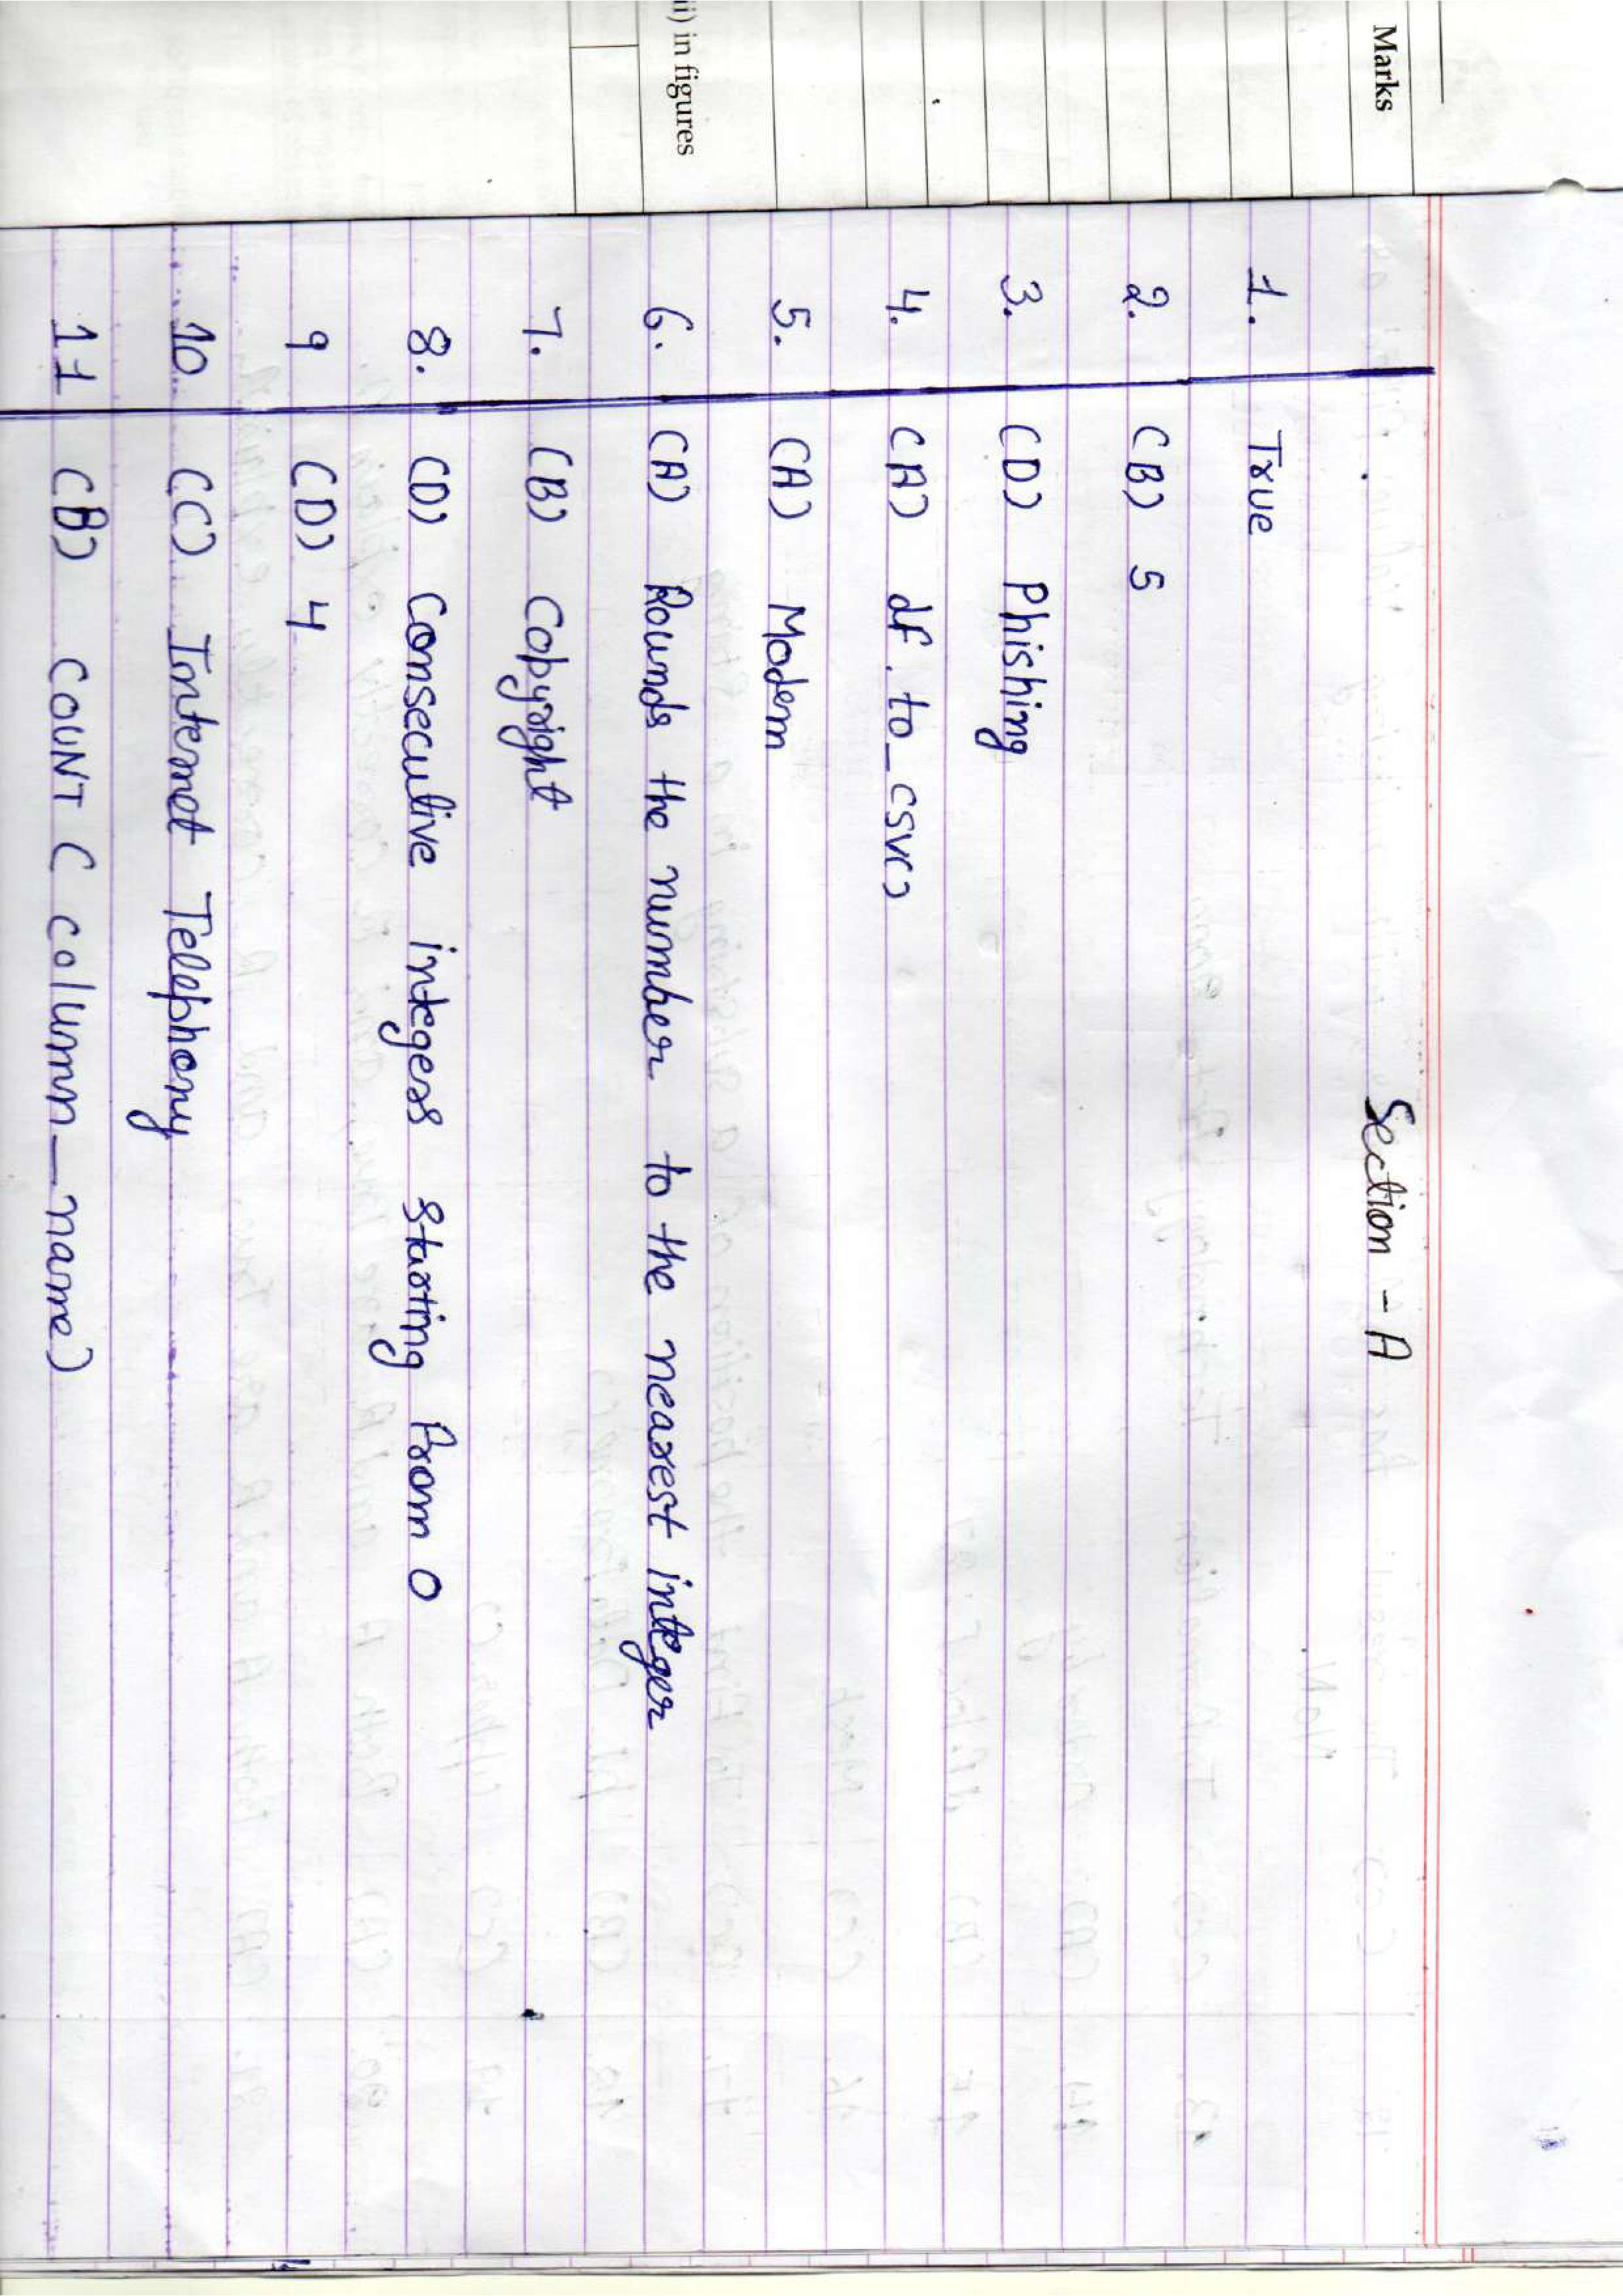 Marks
Section - A
1. True
2. (B) 5
3. (D) Phishing
4. (A) df.to_csv()
5. (A) Modem
ii) in figures
6. (A) Rounds the number to the nearest integer
7. (B) Copyright
8. (D) Consecutive integers starting from 0
9 (D) 4
10 (C) Internet Telephony
11 (B) COUNT ( column_name)